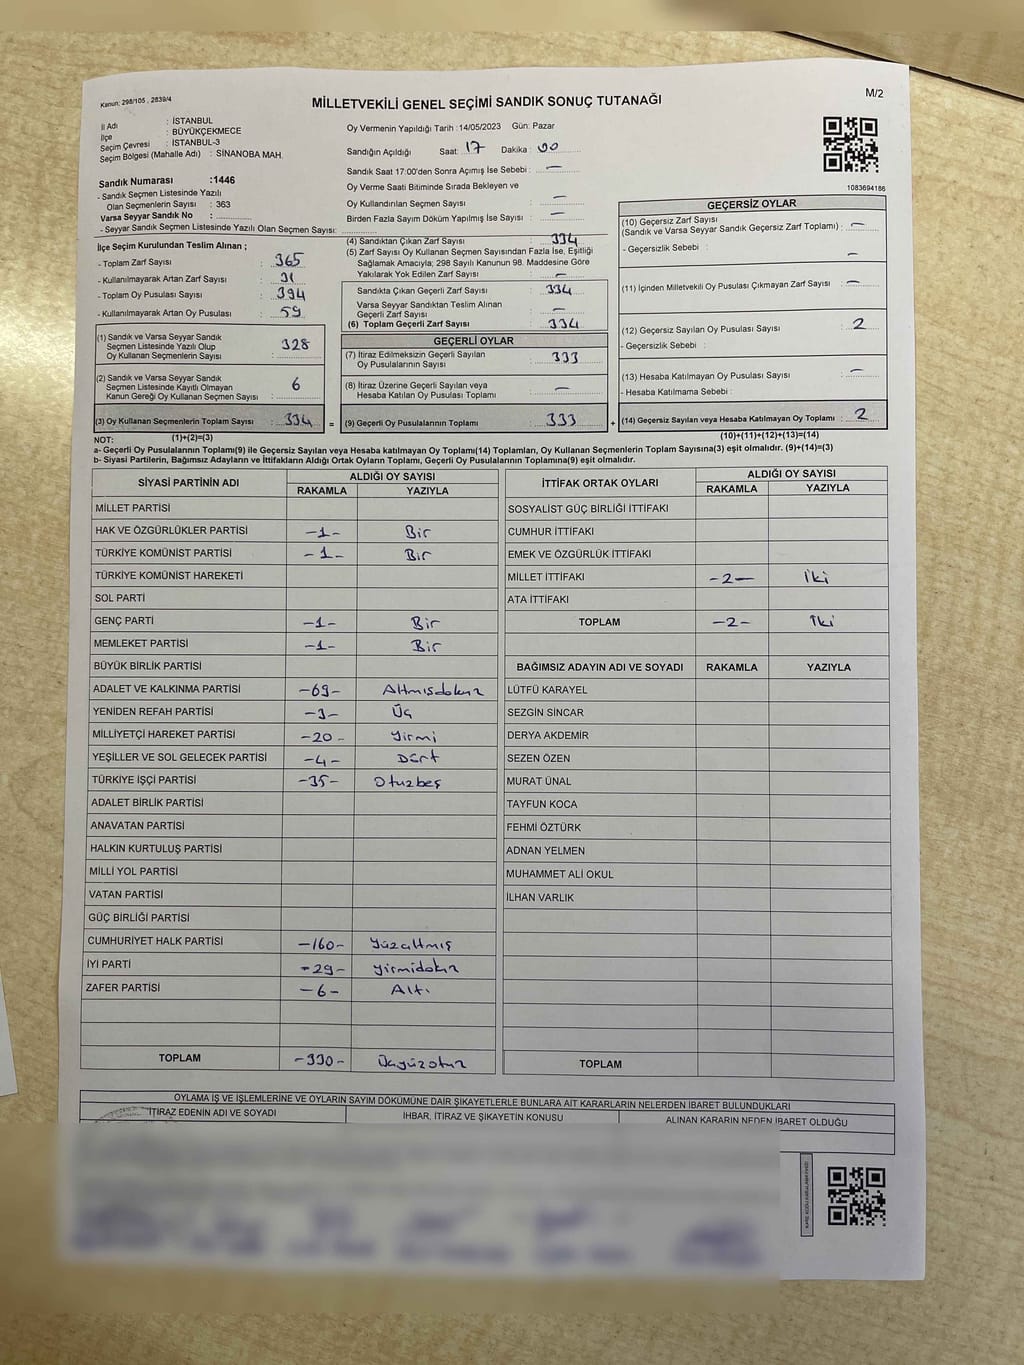 Kanun: 298/105 , 2839/4
MİLLETVEKİLİ GENEL SEÇİMİ SANDIK SONUÇ TUTANAĞI
M/2
İl Adı : İSTANBUL
İlçe : BÜYÜKÇEKMECE
Seçim Çevresi : İSTANBUL-3
Seçim Bölgesi (Mahalle Adı) : SİNANOBA MAH.
Oy Vermenin Yapıldığı Tarih :14/05/2023 Gün: Pazar
Sandığın Açıldığı Saat: 17 Dakika : 00
Sandık Saat 17:00'den Sonra Açımış İse Sebebi : —
Oy Verme Saati Bitiminde Sırada Bekleyen ve
Oy Kullandırılan Seçmen Sayısı —
Birden Fazla Sayım Döküm Yapılmış İse Sayısı : —
1083694186
Sandık Numarası :1446
- Sandık Seçmen Listesinde Yazılı
Olan Seçmenlerin Sayısı : 363
Varsa Seyyar Sandık No :
- Seyyar Sandık Seçmen Listesinde Yazılı Olan Seçmen Sayısı:
İlçe Seçim Kurulundan Teslim Alınan ;
- Toplam Zarf Sayısı : 365
- Kullanılmayarak Artan Zarf Sayısı : 31
- Toplam Oy Pusulası Sayısı : 394
- Kullanılmayarak Artan Oy Pusulası : 59
(1) Sandık ve Varsa Seyyar Sandık
Seçmen Listesinde Yazılı Olup
Oy Kullanan Seçmenlerin Sayısı : 328
(2) Sandık ve Varsa Seyyar Sandık
Seçmen Listesinde Kayıtlı Olmayan
Kanun Gereği Oy Kullanan Seçmen Sayısı : 6
(3) Oy Kullanan Seçmenlerin Toplam Sayısı : 334
(4) Sandıktan Çıkan Zarf Sayısı : 334
(5) Zarf Sayısı Oy Kullanan Seçmen Sayısından Fazla İse, Eşitliği
Sağlamak Amacıyla; 298 Sayılı Kanunun 98. Maddesine Göre
Yakılarak Yok Edilen Zarf Sayısı : —
Sandıkta Çıkan Geçerli Zarf Sayısı : 334
Varsa Seyyar Sandıktan Teslim Alınan
Geçerli Zarf Sayısı : —
(6) Toplam Geçerli Zarf Sayısı : 334
GEÇERLİ OYLAR
(7) İtiraz Edilmeksizin Geçerli Sayılan
Oy Pusulalarının Sayısı : 333
(8) İtiraz Üzerine Geçerli Sayılan veya
Hesaba Katılan Oy Pusulası Toplamı : —
= (9) Geçerli Oy Pusulalarının Toplamı : 333
GEÇERSİZ OYLAR
(10) Geçersiz Zarf Sayısı
(Sandık ve Varsa Seyyar Sandık Geçersiz Zarf Toplamı) : —
- Geçersizlik Sebebi : —
(11) İçinden Milletvekili Oy Pusulası Çıkmayan Zarf Sayısı : —
(12) Geçersiz Sayılan Oy Pusulası Sayısı : 2
- Geçersizlik Sebebi :
(13) Hesaba Katılmayan Oy Pusulası Sayısı : —
- Hesaba Katılmama Sebebi :
+ (14) Geçersiz Sayılan veya Hesaba Katılmayan Oy Toplamı : 2
NOT: (1)+(2)=(3) (10)+(11)+(12)+(13)=(14)
a- Geçerli Oy Pusulalarının Toplamı(9) ile Geçersiz Sayılan veya Hesaba katılmayan Oy Toplamı(14) Toplamları, Oy Kullanan Seçmenlerin Toplam Sayısına(3) eşit olmalıdır. (9)+(14)=(3)
b- Siyasi Partilerin, Bağımsız Adayların ve İttifakların Aldığı Ortak Oyların Toplamı, Geçerli Oy Pusulalarının Toplamına(9) eşit olmalıdır.
SİYASİ PARTİNİN ADI ALDIĞI OY SAYISI
RAKAMLA YAZIYLA
MİLLET PARTİSİ
HAK VE ÖZGÜRLÜKLER PARTİSİ -1- Bir
TÜRKİYE KOMÜNİST PARTİSİ -1- Bir
TÜRKİYE KOMÜNİST HAREKETİ
SOL PARTİ
GENÇ PARTİ -1- Bir
MEMLEKET PARTİSİ -1- Bir
BÜYÜK BİRLİK PARTİSİ
ADALET VE KALKINMA PARTİSİ -69- Altmışdokuz
YENİDEN REFAH PARTİSİ -3- Üç
MİLLİYETÇİ HAREKET PARTİSİ -20- Yirmi
YEŞİLLER VE SOL GELECEK PARTİSİ -4- Dört
TÜRKİYE İŞÇİ PARTİSİ -35- Otuzbeş
ADALET BİRLİK PARTİSİ
ANAVATAN PARTİSİ
HALKIN KURTULUŞ PARTİSİ
MİLLİ YOL PARTİSİ
VATAN PARTİSİ
GÜÇ BİRLİĞİ PARTİSİ
CUMHURİYET HALK PARTİSİ -160- Yüzaltmış
İYİ PARTİ -29- Yirmidokuz
ZAFER PARTİSİ -6- Altı
TOPLAM -330- Üçyüzotuz
İTTİFAK ORTAK OYLARI ALDIĞI OY SAYISI
RAKAMLA YAZIYLA
SOSYALİST GÜÇ BİRLİĞİ İTTİFAKI
CUMHUR İTTİFAKI
EMEK VE ÖZGÜRLÜK İTTİFAKI
MİLLET İTTİFAKI -2- İki
ATA İTTİFAKI
TOPLAM -2- İki
BAĞIMSIZ ADAYIN ADI VE SOYADI RAKAMLA YAZIYLA
LÜTFÜ KARAYEL
SEZGİN SİNCAR
DERYA AKDEMİR
SEZEN ÖZEN
MURAT ÜNAL
TAYFUN KOCA
FEHMİ ÖZTÜRK
ADNAN YELMEN
MUHAMMET ALİ OKUL
İLHAN VARLIK
TOPLAM
OYLAMA İŞ VE İŞLEMLERİNE VE OYLARIN SAYIM DÖKÜMÜNE DAİR ŞİKAYETLERLE BUNLARA AİT KARARLARIN NELERDEN İBARET BULUNDUKLARI
İTİRAZ EDENİN ADI VE SOYADI İHBAR, İTİRAZ VE ŞİKAYETİN KONUSU ALINAN KARARIN NEDEN İBARET OLDUĞU